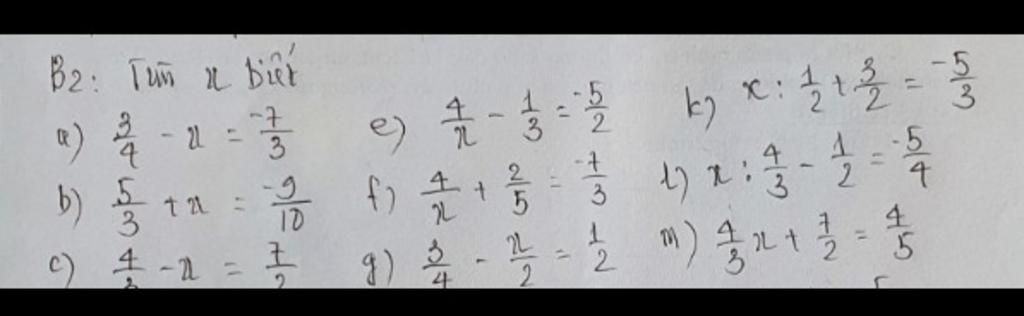 B2: Tìm x biết
a) 3/4 - x = -7/3
b) 5/3 + x = -9/10
c) 4/3 - x = 7/2
e) 4/x - 1/3 = -5/2
f) 4/x + 2/5 = -7/3
g) 3/4 - x/2 = 1/2
k) x : 1/2 + 3/2 = -5/3
l) x : 4/3 - 1/2 = -5/4
m) 4/3 x + 7/2 = 4/5